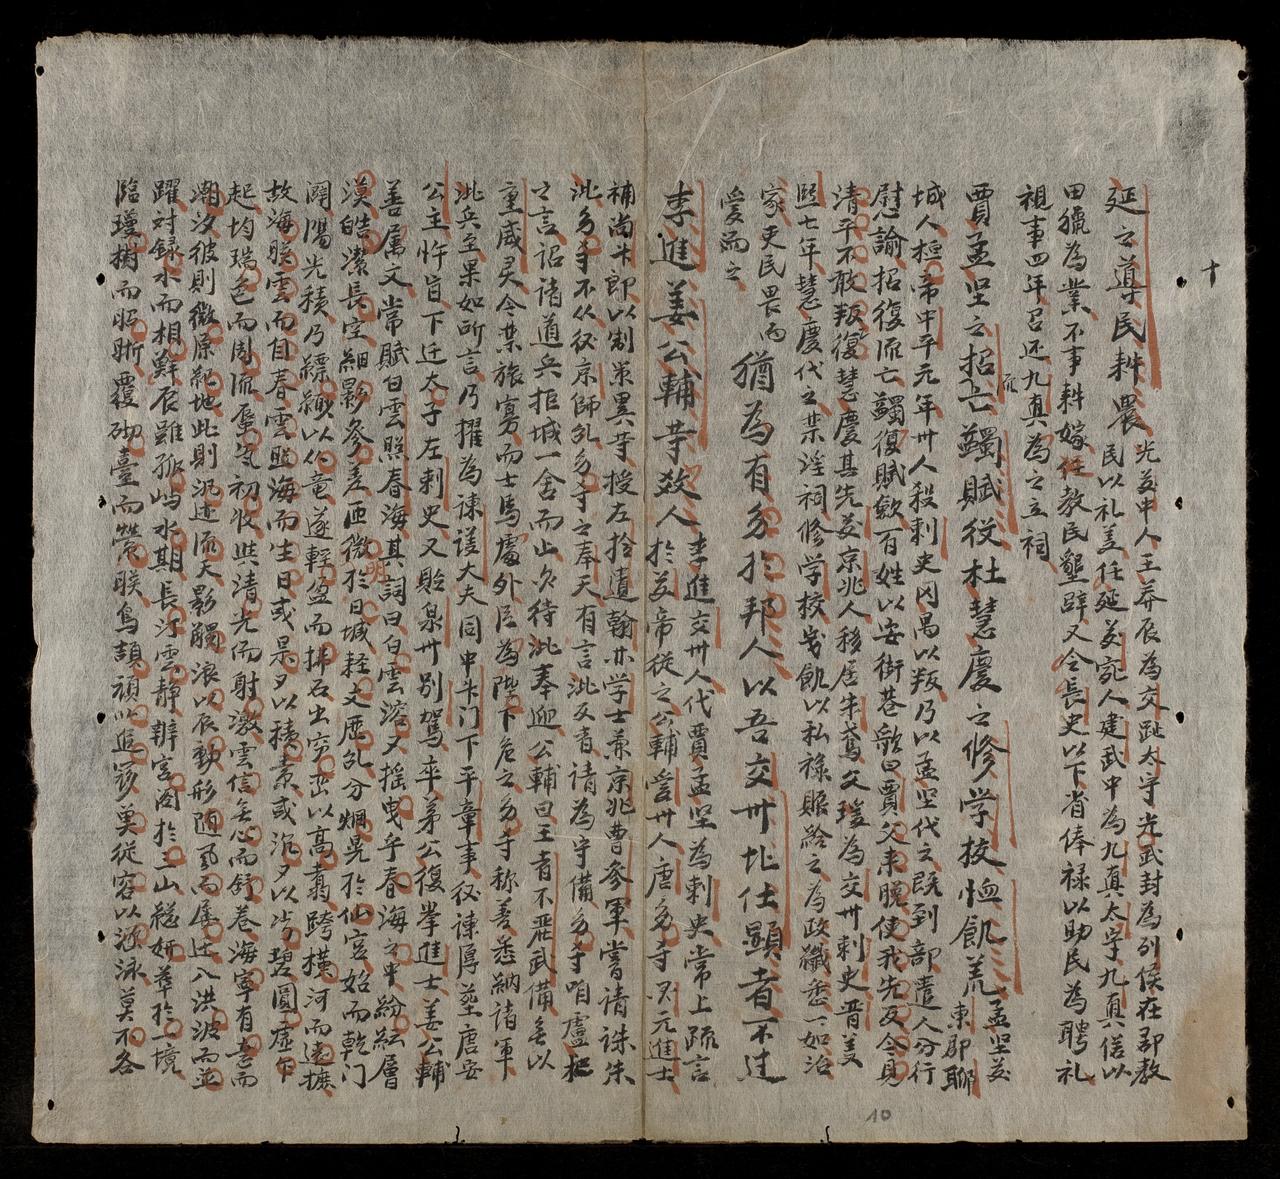 十
延之導民耕農光漢中人王莽辰為交趾太守光武封為列侯在郡教
民以礼義任延漢宛人建武中為九真太守九真俗以
田獵為業不事耕嫁任教民墾辟又令長史以下省俸禄以助民為聘礼
視事四年召还九真為之立祠
賈孟坚之招流亡蠲賦役杜慧慶之修学校恤飢荒孟坚漢
東郡聊
城人桓帝中平元年州人殺刺史冈禺以叛乃以孟坚代之既到部遣人分行
慰諭招復流亡蠲復賦歛百姓以安街巷歌曰賈父来脱使我先反今見
清平不敢叛復慧慶其先漢京兆人移居朱鳶父瑗為交州刺史晋義
熙七年慧慶代之禁淫祠修学校歲飢以私禄賑給之為政纖悉一如治
家吏民畏而
愛而之
猶為有多於邦人以吾交州地仕顯者不过
李進姜公輔等数人李進交州人代賈孟坚為刺史常上疏言
於漢帝従之公輔爱州人唐多寺元進士
補尚书郎以制策異等授左拾遺翰林学士兼京兆曹参軍嘗请誅朱
泚多寺不从役京師乱多寺之奉天有言泚反者请為守備多寺咱盧杞
之言詔诸道兵拒城一舍而止欲待泚奉迎公輔曰王者不嚴武備無以
重威灵今禁旅寡而士馬處外臣為陛下危之多寺称善悉納诸軍
泚兵至果如所言乃擢為諫议大夫同中书门下平章事役諌厚塟唐安
公主忤旨下迁太子左刺史又貽泉州別駕卒弟公復挙進士姜公輔
善属文常賦白雲照春海其詞曰白雲溶々揺曳乎春海之中紛紜層
漠皓潔長空細影参差匝微明於日域軽文歷乱分烱晃於仙宮始而乾门
闢陽光積乃縹緲以从竜遂軽盈而拂石出穷巒以高翥跨横河而遠摭
故海映雲而自春雲照海而生日或杲々以積素或沉々以歩碧圓虚乍
起均瑞色而周流蜃气初收共清光而射激雲信無心而舒卷海寧有意而
潮汐彼則微原紀地此則沠迹流天影觸浪以辰動形随風而屡迁入洪波而並
躍对録水而相鮮辰雖孤屿水朗長汀雲静辨宮阙於三山総妍華於一境
臨瓊樹而昭晰覆砌臺而縈映鳥頡頏以追寥奠従容以涵泳莫不各
10